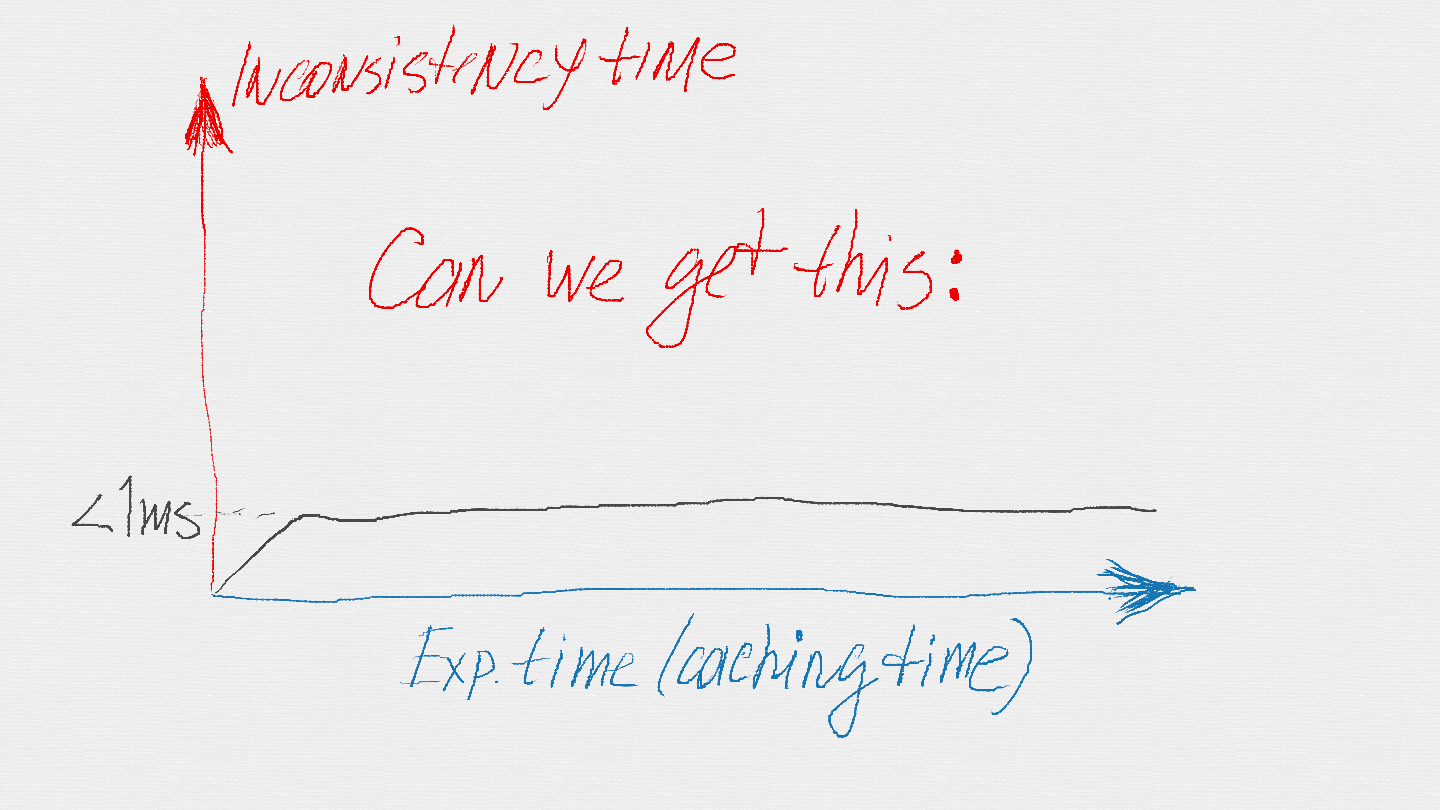 Inconsistency time
Can we get this:
<1ms
Exp. time (caching time)